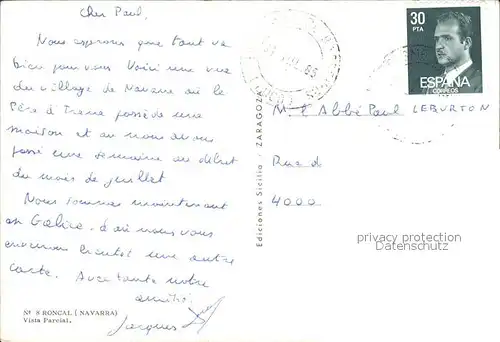 Cher Paul,
Nous espérons que tout va
bien pour vous. Voici une vue
du village de Navarre où le
Père d'Irène possède une
maison et où nous avons
passé une semaine au début
du mois de juillet
Nous sommes maintenant
en Galice d'où nous vous
enverrons bientôt une autre
carte. Avec toute notre
amitié.
Jacques
Nº 8 RONCAL (NAVARRA)
Vista Parcial.
Ediciones Sicilia - ZARAGOZA
30
PTA
ESPAÑA
CORREOS
M. l'Abbé Paul LEBURTON
Rue d
4000
privacy protection
oldthing.com